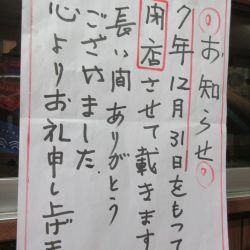 お知らせ
7年12月31日をもって
閉店させて載きます
長い間ありがとう
ございました
心よりお礼申し上げま